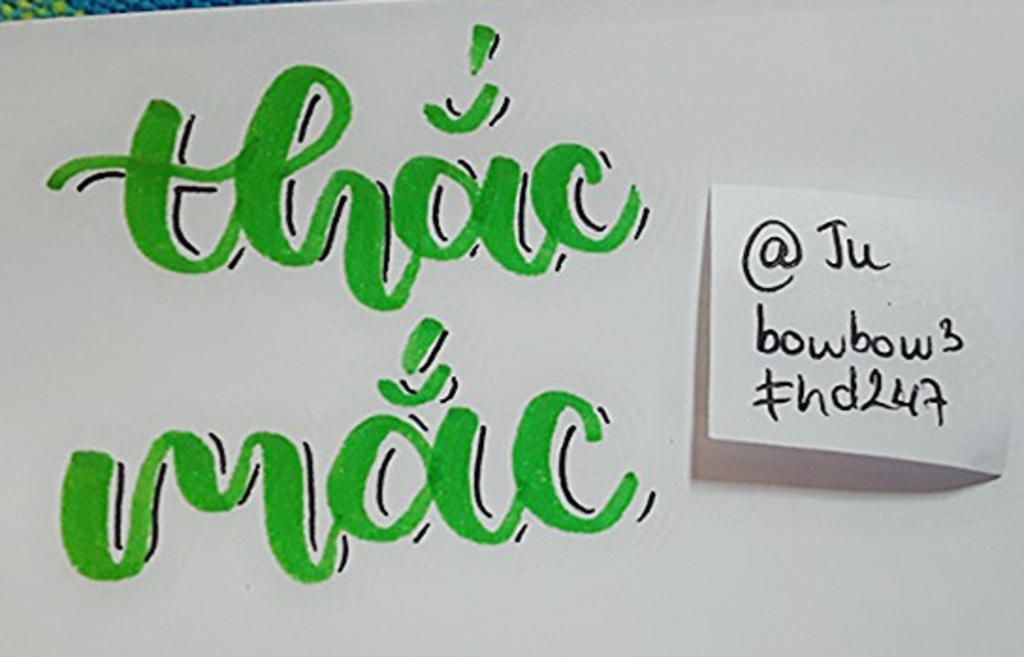 thắc
mắc
@Ju
bowbow3
#hd247